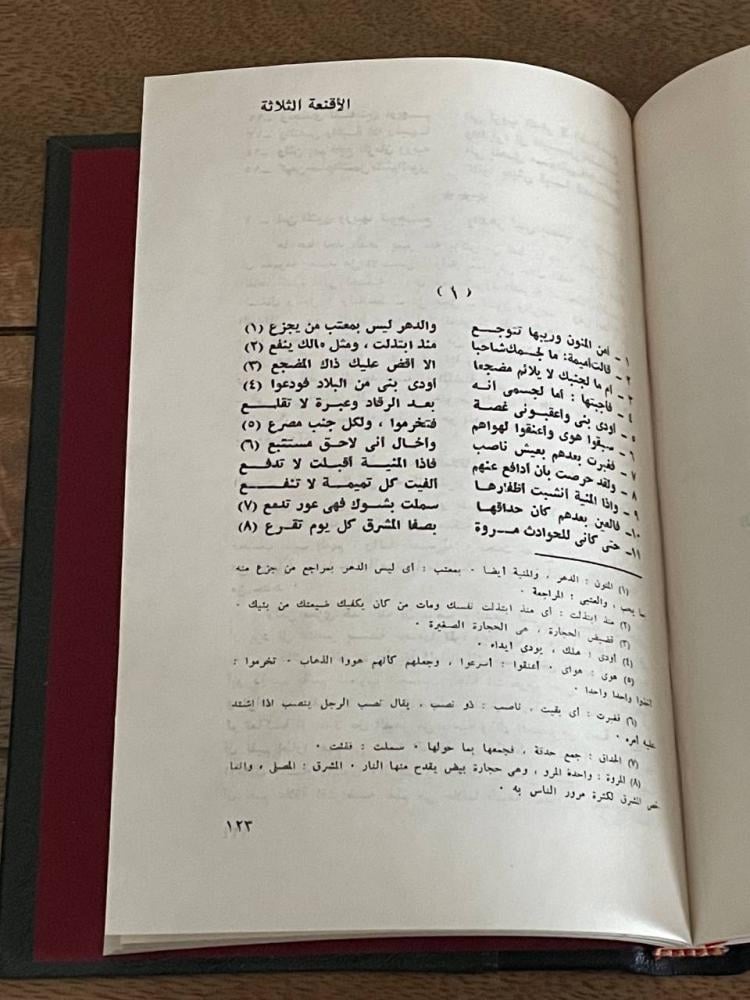 الأقنعة الثلاثة
(١)
١ - أمن المنون وريبها تتوجـــع والدهر ليس بمعتب من يجزع (١)
٢ - قالت أميمة: ما لجسمك شاحبا منذ ابتذلت ، ومثل مالك ينفع (٢)
٣ - ام ما لجنبك لا يلائم مضجعا الا أقض عليك ذاك المضجع (٣)
٤ - فاجبتها : أما لجسمى انه أودى بنى من البلاد فودعوا (٤)
٥ - أودى بنى واعقبونى غصة بعد الرقاد وعبرة لا تقلـــع
٦ - سبقوا هوى وأعنقوا لهواهم فتخرموا ، ولكل جنب مصرع (٥)
٧ - فغبرت بعدهم بعيش ناصب واخال انى لاحق مستتبع (٦)
٨ - ولقد حرصت بان ادافع عنهم فاذا المنية أقبلت لا تدفـــع
٩ - واذا المنية أنشبت اظفارها الفيت كل تميمة لا تنفـــع
١٠- فالعين بعدهم كان حداقها سملت بشوك فهى عور تدمع (٧)
١١- حتى كانى للحوادث مـــروة بصفا المشرق كل يوم تقـرع (٨)
(١) المنون : الدهر ، والمنية أيضا ٠ بمعتب : أى ليس الدهر بمراجع من جزع منه
بما يحب ، والعتبى : المراجعة ٠
(٢) منذ ابتذلت : أى منذ ابتذلت نفسك ومات من كان يكفيك ضيعتك من بنيك ٠
(٣) قضيض الحجارة ، هى الحجارة الصغيرة ٠
(٤) أودى : هلك ، يودى ايداء ٠
(٥) هوى : هواى ٠ أعنقوا : أسرعوا ، وجعلهم كأنهم هووا الذهاب ٠ تخرموا :
أخذوا واحدا واحدا ٠
(٦) فغبرت : أى بقيت ، ناصب : ذو نصب ، يقال نصب الرجل ينصب اذا اشتد
عليه أمره ٠
(٧) الحداق : جمع حدقة ، فجمعها بما حولها ٠ سملت : فقئت ٠
(٨) المروة : واحدة المرو ، وهى حجارة بيض يقدح منها النار ٠ المشرق : المصلى ، وانما
خص المشرق لكثرة مرور الناس به ٠
١٢٣